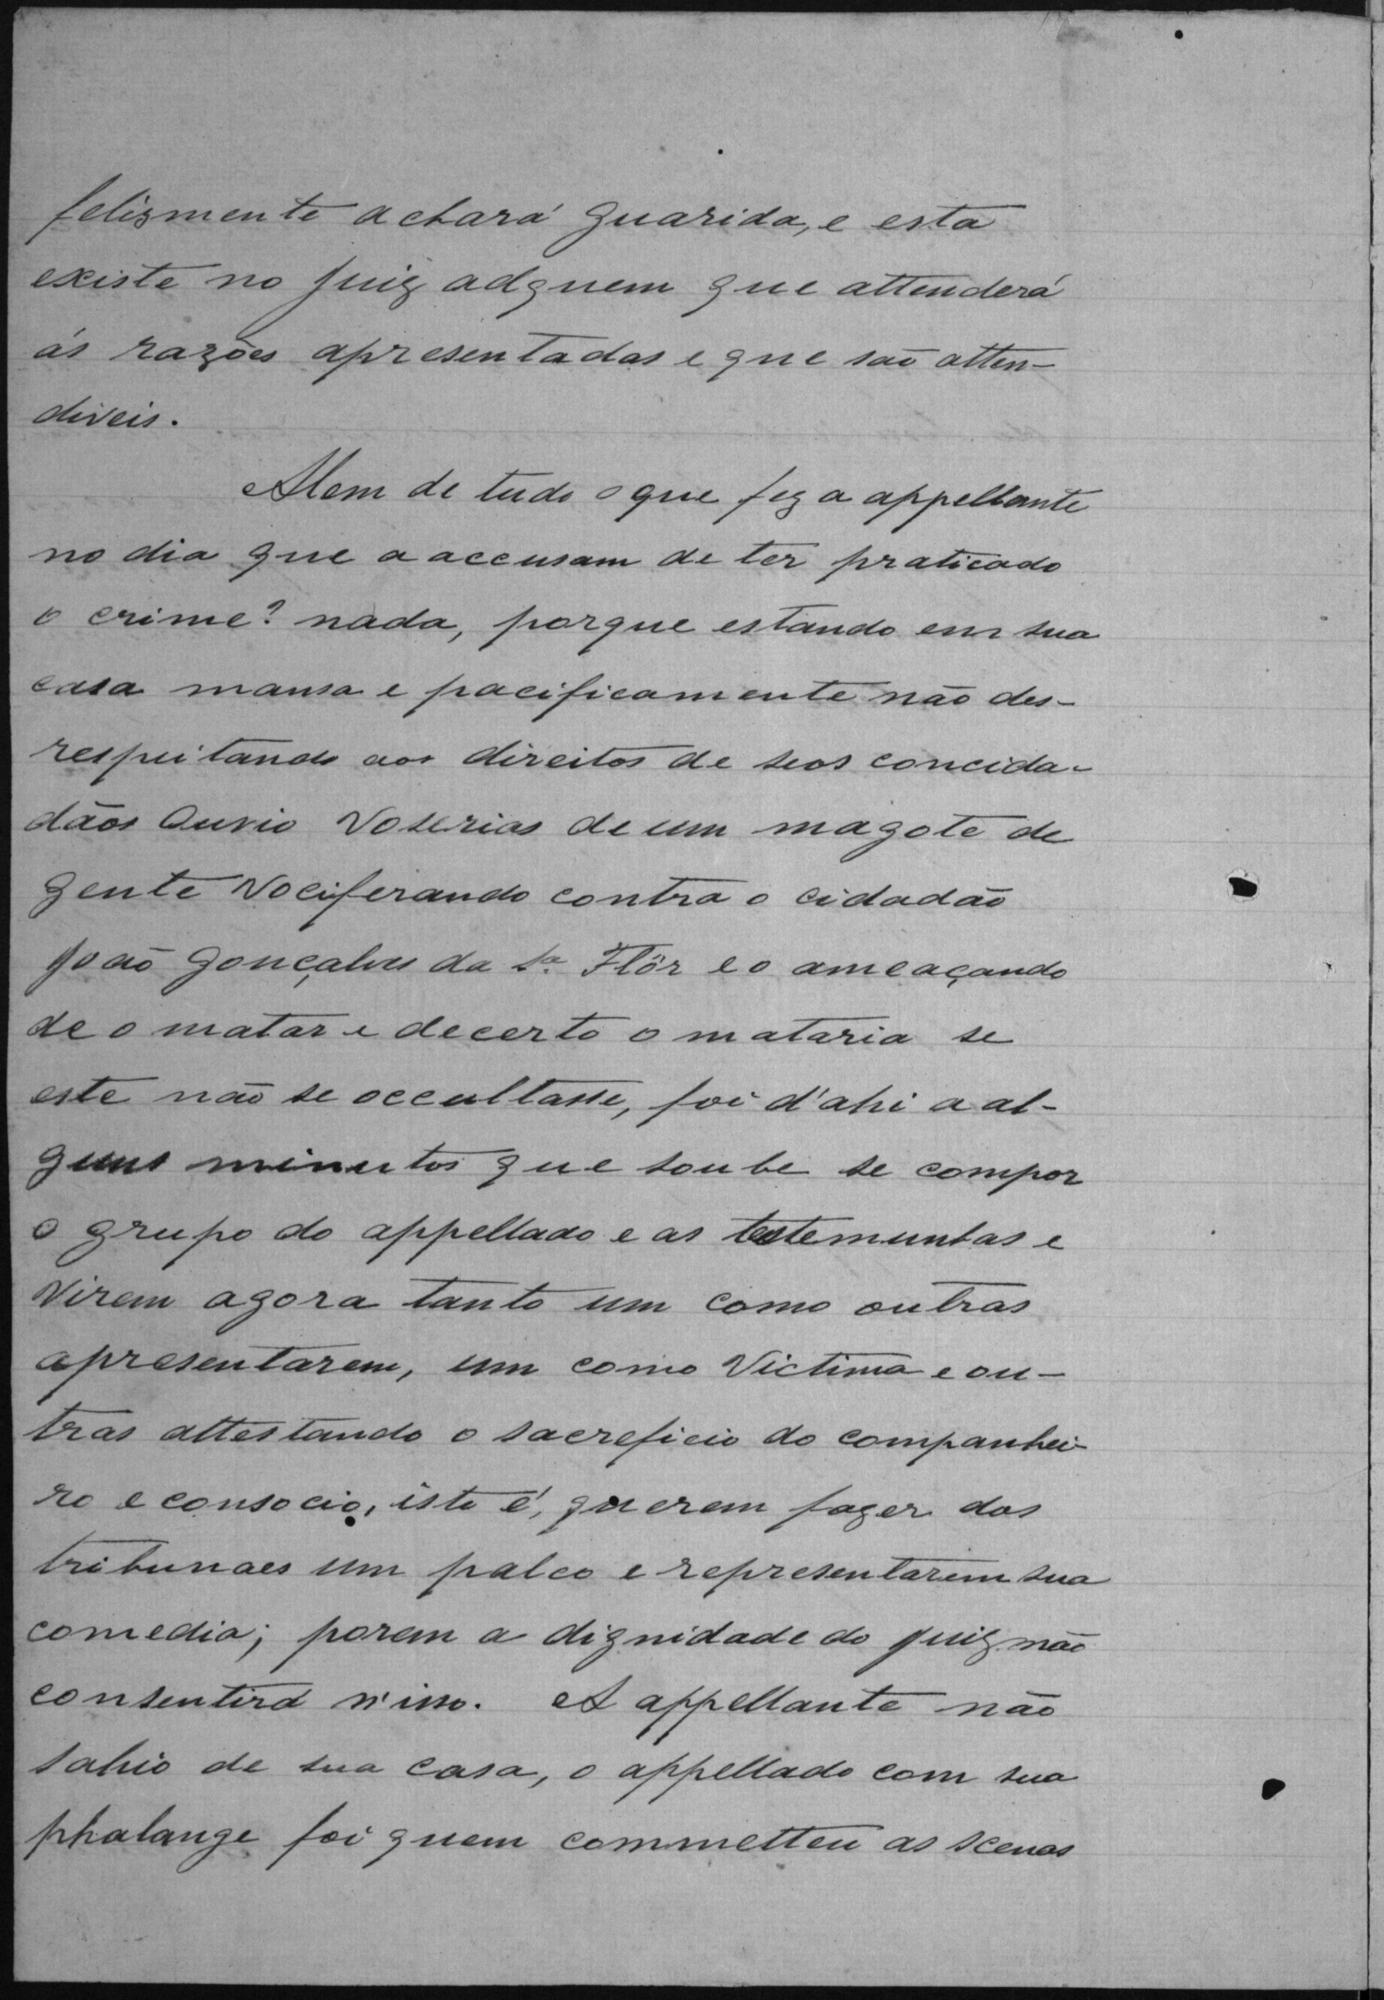 felismente achará guarida, e esta
existe no juiz adquem que attenderá
ás razões apresentadas e que são atten-
diveis.
Alem de tudo o que fez a appellante
no dia que a accusam de ter praticado
o crime? nada, porque estando em sua
casa mansa e pacificamente não des-
respeitando aos direitos de seos concida-
dãos ouvio voserias de um magote de
gente vociferando contra o cidadão
João Gonçalves da Sa. Flôr e o ameaçando
de o matar e decerto o mataria se
este não se occultasse, foi d'ahi a al-
guns minutos que soube se compor
o grupo do appellado e as testemunhas e
virem agora tanto um como outras
apresentarem, um como victima e ou-
tras attestando o sacreficio do companhei-
ro e consocio, isto é, querem fazer dos
tribunaes um palco e representarem sua
comedia; porem a dignidade do juiz não
consentirá n'isso. A appellante não
sahio de sua casa, o appellado com sua
phalange foi quem commetteu as scenas